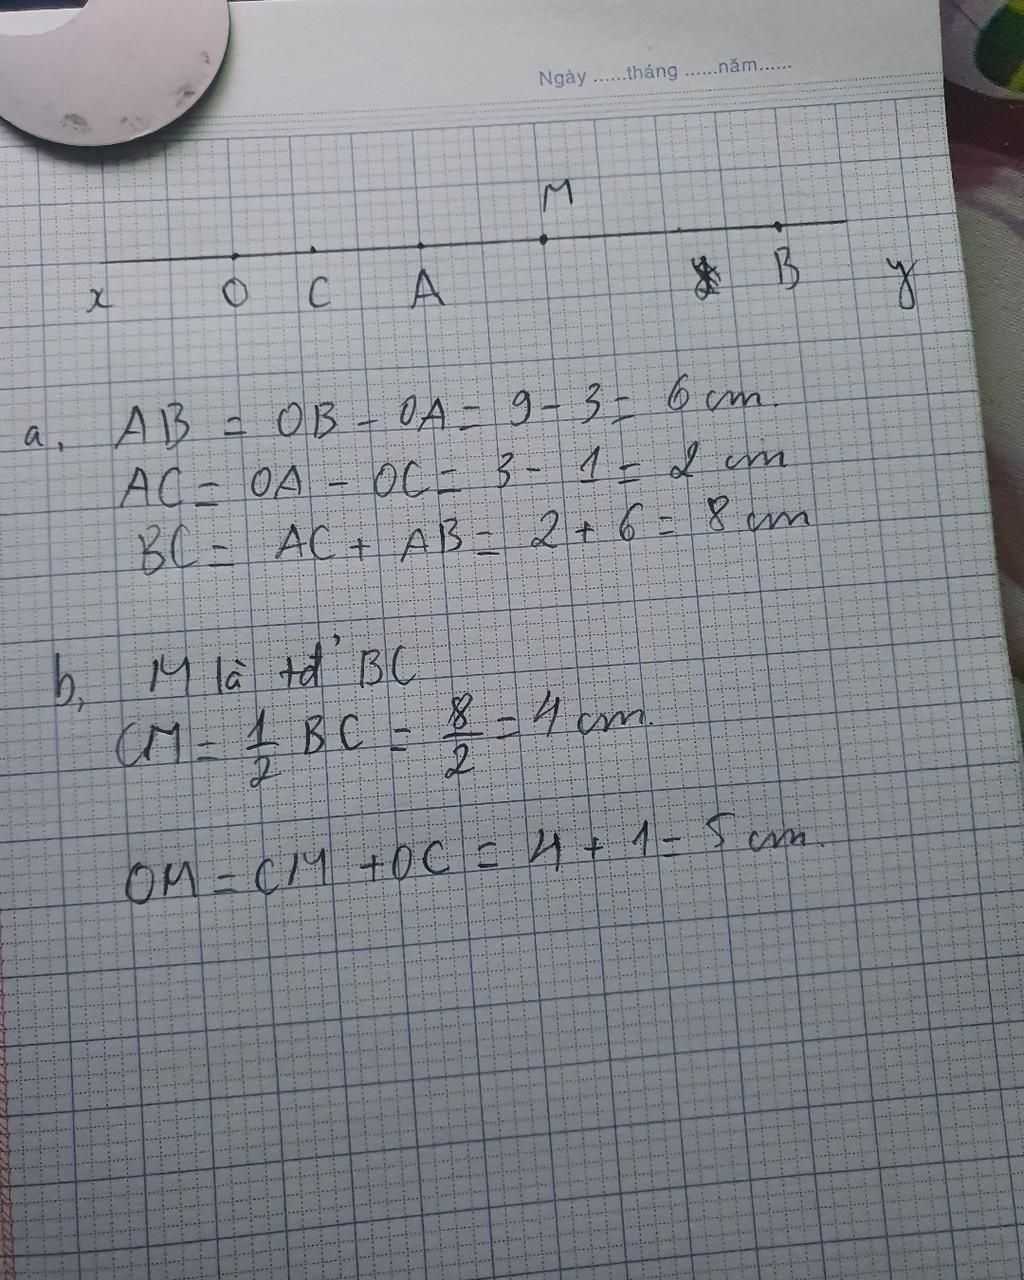 Ngày ......tháng ......năm......
M
x O C A B y
a, AB = OB - OA = 9 - 3 = 6 cm.
AC = OA - OC = 3 - 1 = 2 cm
BC = AC + AB = 2 + 6 = 8 cm
b, M là tđ' BC
CM = 1/2 BC = 8/2 = 4 cm.
OM = CM + OC = 4 + 1 = 5 cm.